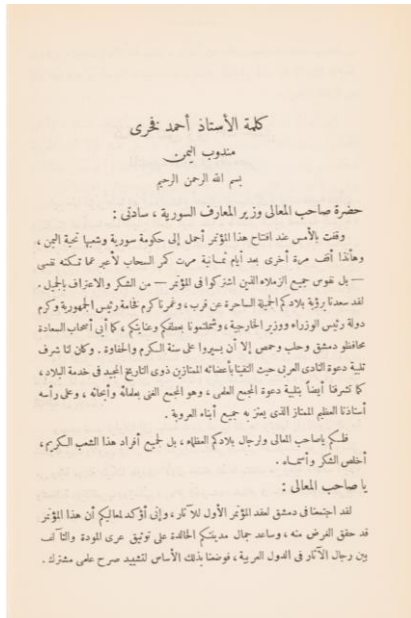 كلمة الأستاذ أحمد فخرى
مندوب اليمن
بسم الله الرحمن الرحيم
حضرة صاحب المعالى وزير المعارف السورية ، سادتى :
وقفت بالأمس عند افتتاح هذا المؤتمر أحمل إلى حكومة سورية وشعبها تحية اليمن ،
وهأنذا أقف مرة أخرى بعد أيام ثمانية مرت كمر السحاب لأعبر عما تكنه نفسى
— بل نفوس جميع الزملاء الذين اشتركوا فى المؤتمر — من الشكر والاعتراف بالجميل .
لقد سعدنا برؤية بلادكم الجميلة الساحرة عن قرب ، وغمرنا كرم فخامة رئيس الجمهورية وكرم
دولة رئيس الوزراء ووزير الخارجية ، وشملتمونا بعطفكم وعنايتكم ، كما أبى أصحاب السعادة
محافظو دمشق وحلب وحمص إلا أن يسيروا على سنة الكرم والحفاوة . وكان لنا شرف
تلبية دعوة النادى العربى حيث التقينا بأعضائه الممتازين ذوى التاريخ المجيد فى خدمة البلاد ،
كما تشرفنا أيضاً بتلبية دعوة المجمع العلمى ، وهو المجمع الغنى بعلمائه وأبحاثه ، وعلى رأسه
أستاذنا العظيم الممتاز الذى يعتز به جميع أبناء العروبة .
فلكم ياصاحب المعالى ولرجال بلادكم العظماء ، بل لجميع أفراد هذا الشعب الكريم ،
أخلص الشكر وأسماه .
يا صاحب المعالى :
لقد اجتمعنا فى دمشق لعقد المؤتمر الأول للآثار ، وإنى أؤكد لمعاليكم أن هذا المؤتمر
قد حقق الغرض منه ، وساعد جمال مدينتكم الخالدة على توثيق عرى المودة والتآلف
بين رجال الآثار فى الدول العربية ، فوضعنا بذلك الأساس لتشييد صرح علمى مشترك .